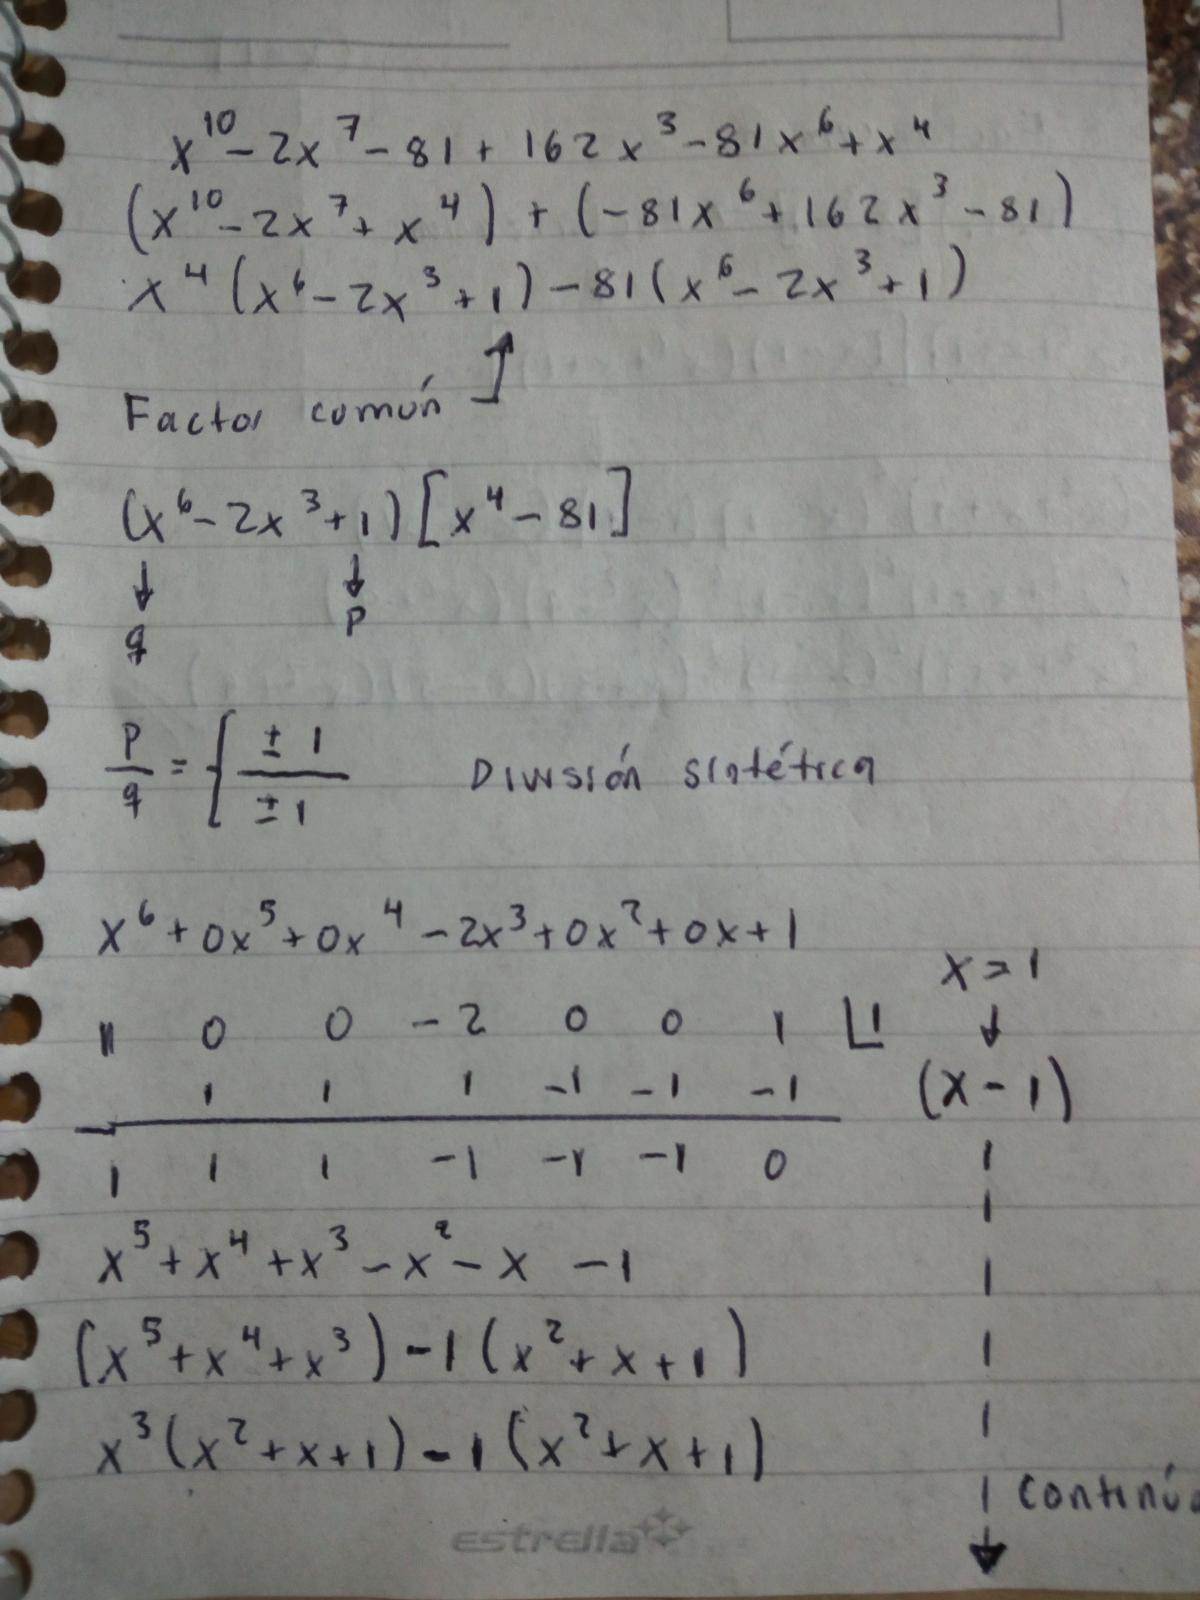 x¹⁰ - 2x⁷ - 81 + 162x³ - 81x⁶ + x⁴
(x¹⁰ - 2x⁷ + x⁴) + (-81x⁶ + 162x³ - 81)
x⁴(x⁶ - 2x³ + 1) - 81(x⁶ - 2x³ + 1)
Factor común
(x⁶ - 2x³ + 1)[x⁴ - 81]
↓ ↓
q p
p/q = { ±1/±1 División sintética
x⁶ + 0x⁵ + 0x⁴ - 2x³ + 0x² + 0x + 1
x = 1
1 0 0 -2 0 0 1 |1 ↓
1 1 1 -1 -1 -1 (x - 1)
1 1 1 -1 -1 -1 0
x⁵ + x⁴ + x³ - x² - x - 1
(x⁵ + x⁴ + x³) - 1(x² + x + 1)
x³(x² + x + 1) - 1(x² + x + 1)
continúa
estrella